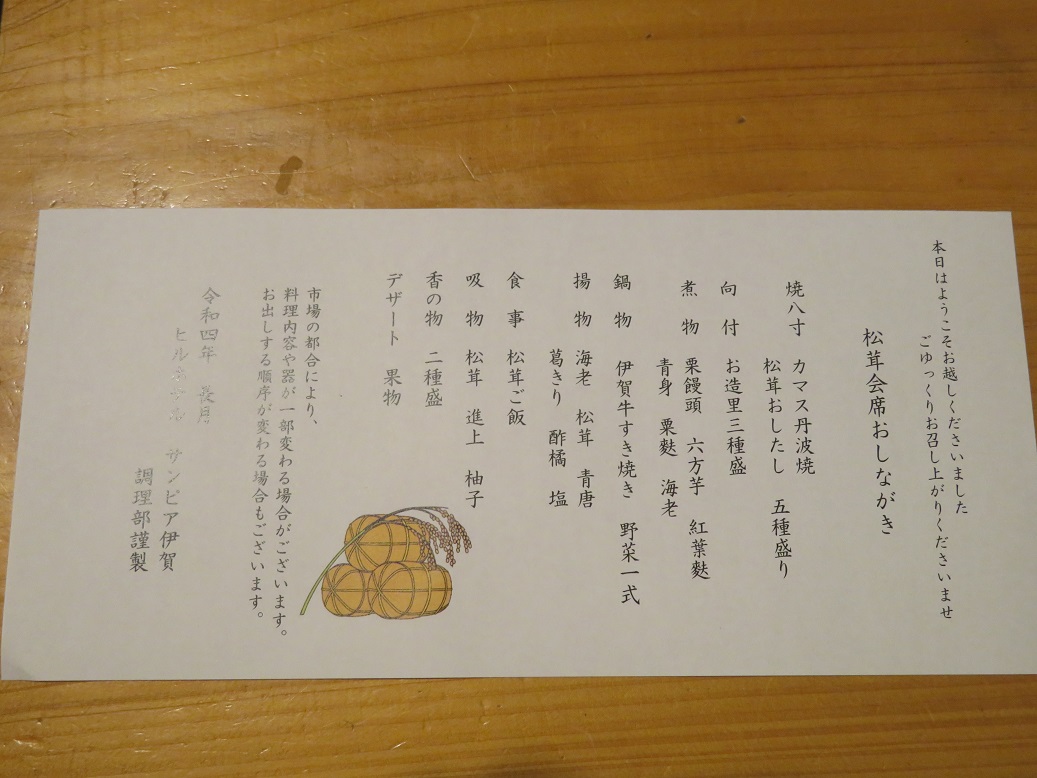 本日はようこそお越しくださいました
ごゆっくりお召し上がりくださいませ
松茸会席おしながき
焼八寸 カマス丹波焼
松茸おしたし 五種盛り
向付 お造里三種盛
煮物 栗饅頭 六方芋 紅葉麩
青身 粟麩 海老
鍋物 伊賀牛すき焼き 野菜一式
揚物 海老 松茸 青唐
葛きり 酢橘 塩
食事 松茸ご飯
吸物 松茸 進上 柚子
香の物 二種盛
デザート 果物
市場の都合により、
料理内容や器が一部変わる場合がございます。
お出しする順序が変わる場合もございます。
令和四年 長月
ヒルホテル サンピア伊賀
調理部謹製